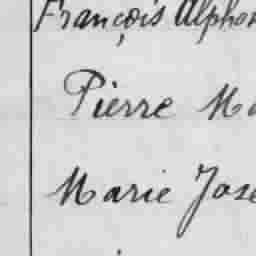 François Alphon
Pierre Ma
Marie Jose